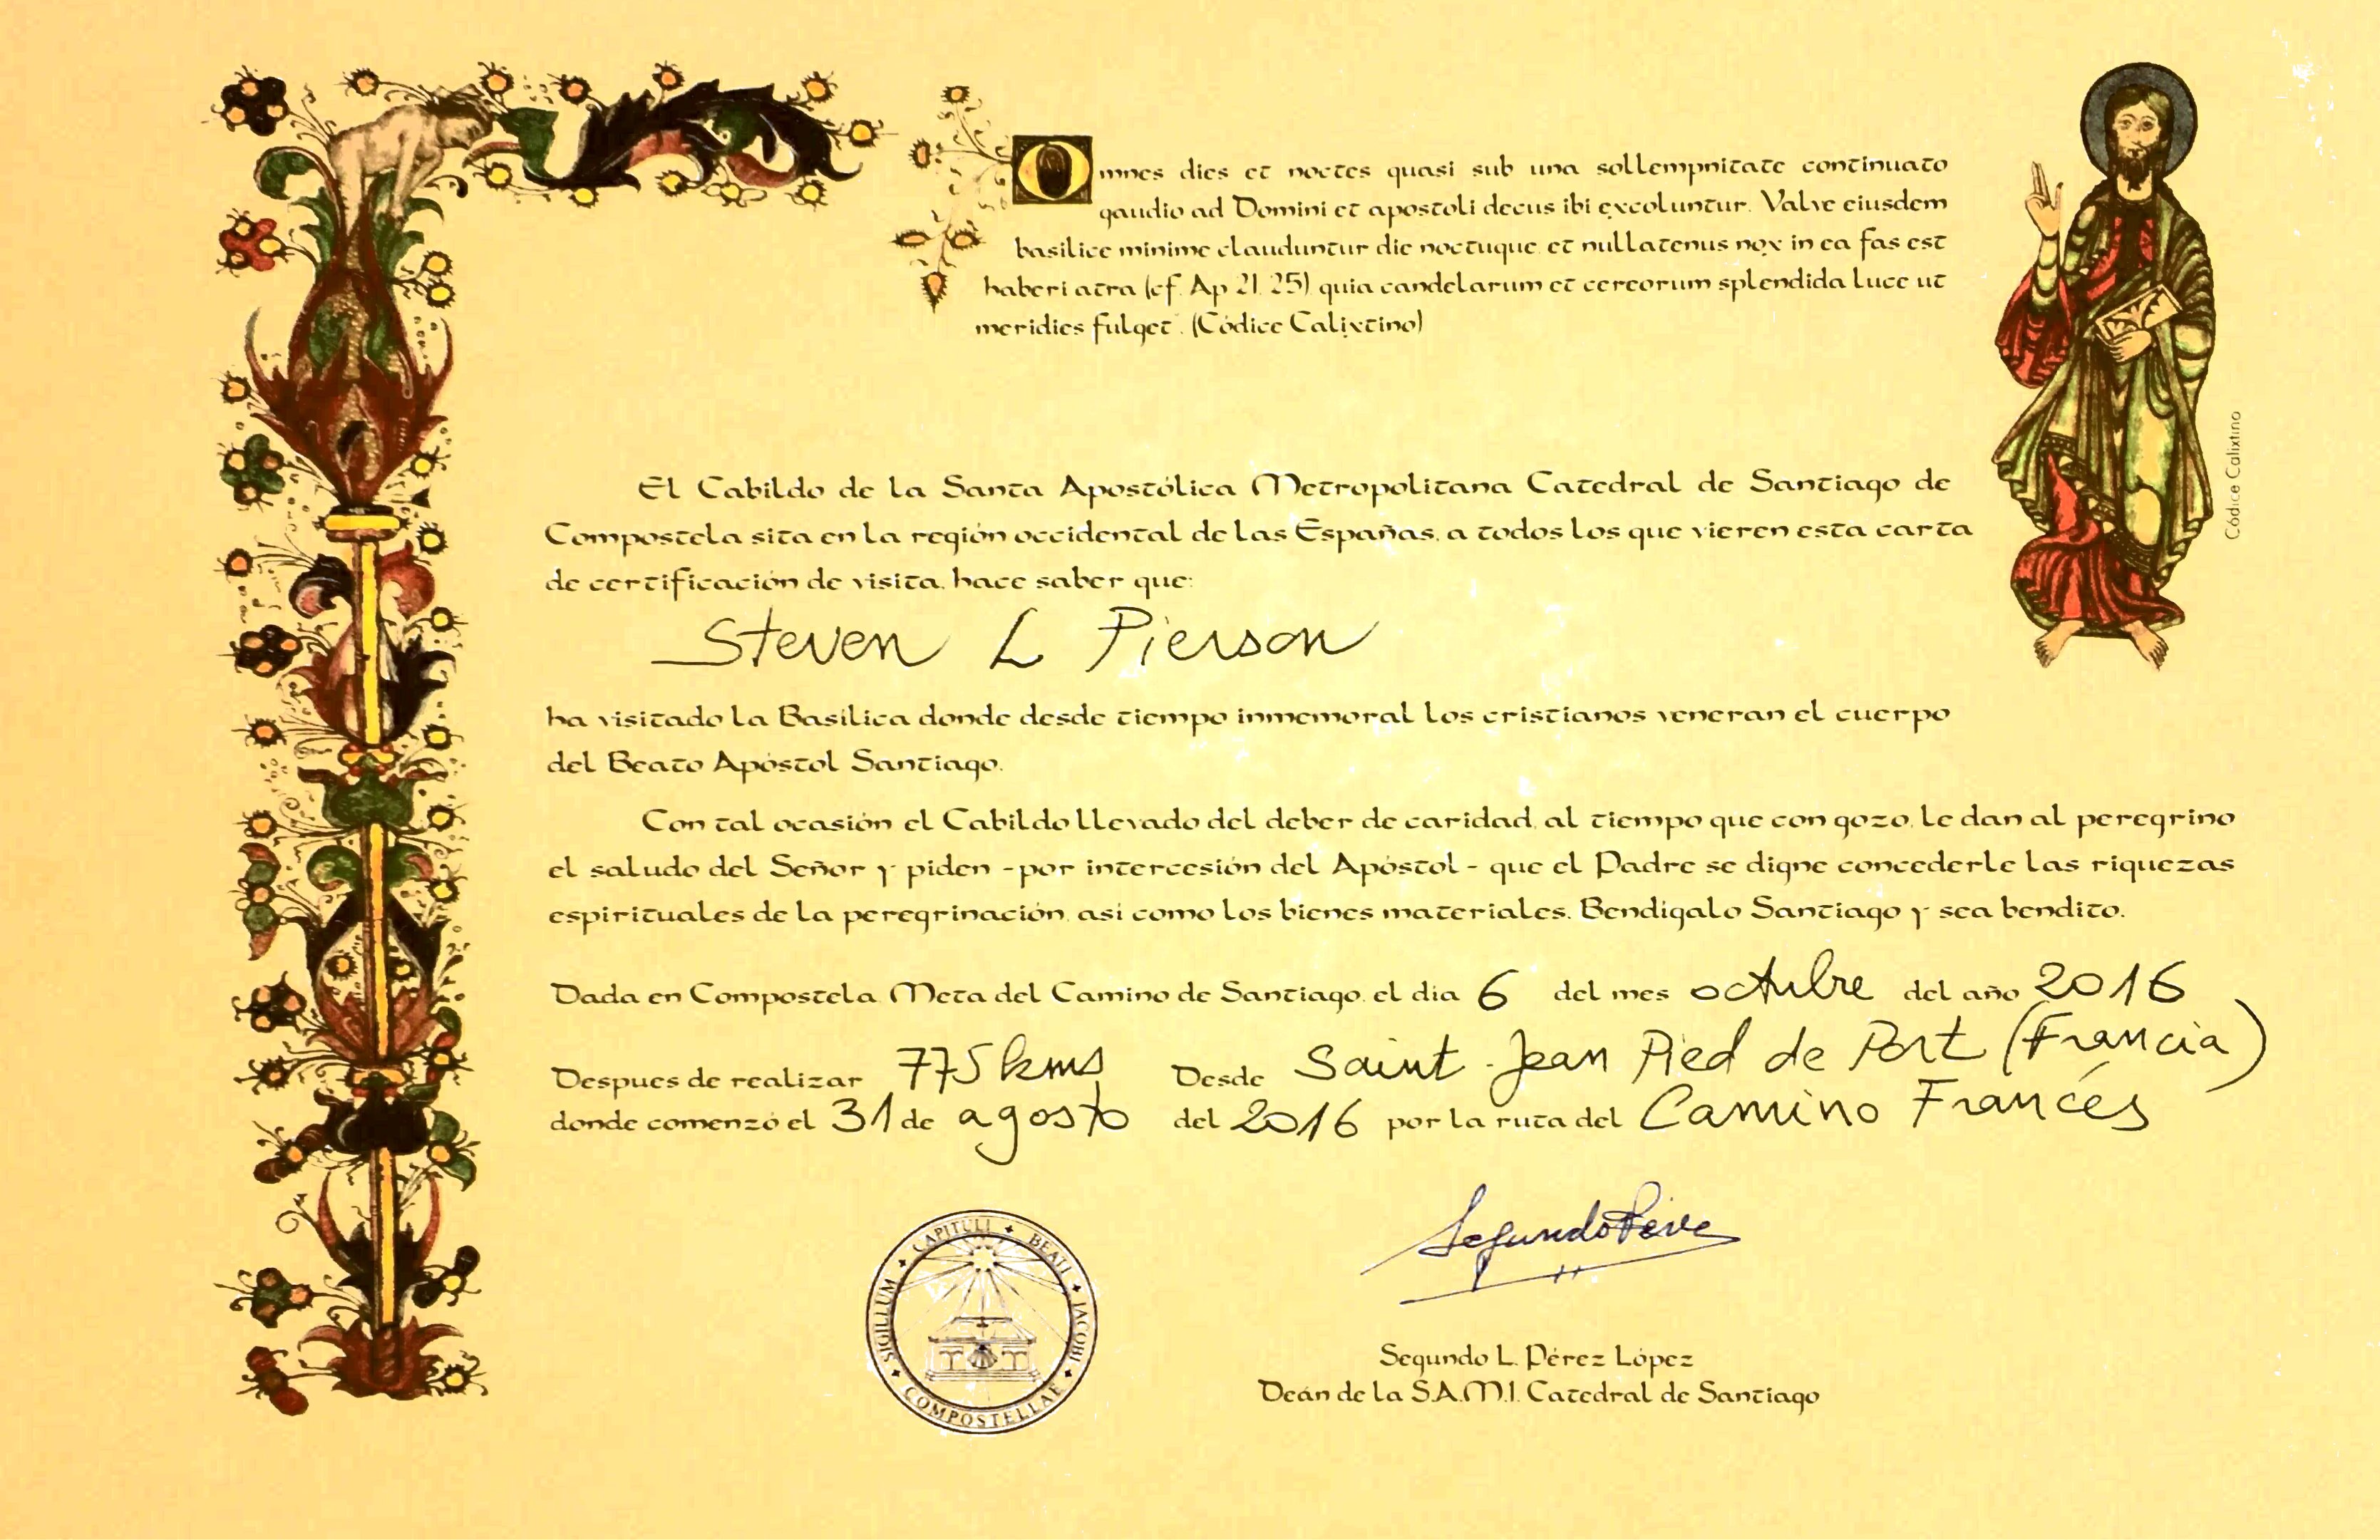 Omnes dies et noctes quasi sub una sollempnitate continuato
gaudio ad Domini et apostoli decus ibi excoluntur. Valve eiusdem
basilice minime clauduntur die noctuque, et nullatenus nox in ea fas est
haberi atra (cf. Ap 21, 25), quia candelarum et cereorum splendida luce ut
meridies fulget". (Códice Calixtino)
Códice Calixtino
El Cabildo de la Santa Apostólica Metropolitana Catedral de Santiago de
Compostela sita en la región occidental de las Españas, a todos los que vieren esta carta
de certificación de visita, hace saber que:
Steven L Pierson
ha visitado la Basílica donde desde tiempo inmemoral los cristianos veneran el cuerpo
del Beato Apóstol Santiago.
Con tal ocasión el Cabildo llevado del deber de caridad, al tiempo que con gozo, le dan al peregrino
el saludo del Señor y piden -por intercesión del Apóstol- que el Padre se digne concederle las riquezas
espirituales de la peregrinación, así como los bienes materiales. Bendígalo Santiago y sea bendito.
Dada en Compostela, Meta del Camino de Santiago, el día 6 del mes octubre del año 2016
Despues de realizar 775 kms Desde Saint-Jean Pied de Port (Francia)
donde comenzó el 31 de agosto del 2016 por la ruta del Camino Francés
SIGILLUM CAPITULI BEATI IACOBI COMPOSTELLAE
Segundo L. Pérez López
Deán de la S.A.M.I. Catedral de Santiago